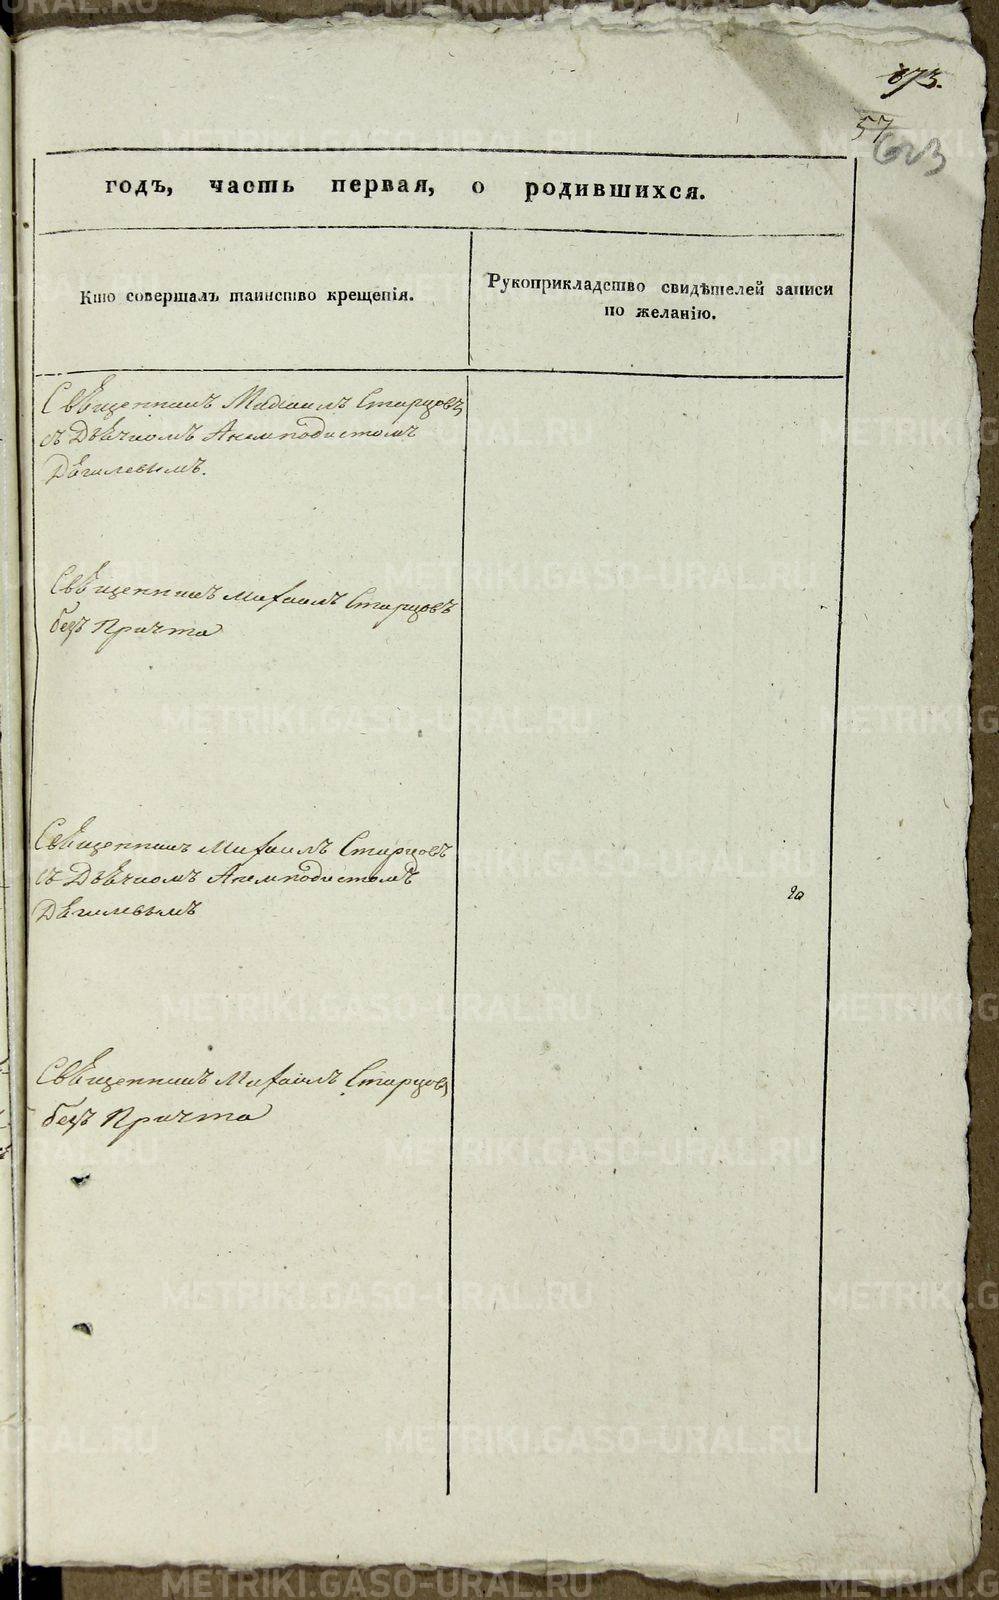 673.
57
623
годъ, часть первая, о родившихся.
Кто совершалъ таинство крещенія.
Рукоприкладство свидѣтелей записи
по желанію.
Священникъ Михаилъ Старцовъ
съ Дьячкомъ Анемподистомъ
Дягилевымъ.
Священникъ Михаилъ Старцовъ
безъ Причта
Священникъ Михаилъ Старцовъ
съ Дьячкомъ Анемподистомъ
Дягилевымъ
Священникъ Михаилъ Старцовъ
безъ Причта
METRIKI.GASO-URAL.RU